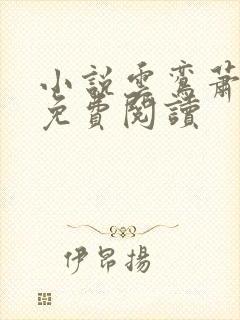 小說雲鸞蕭
免費閱讀
伊昂揚